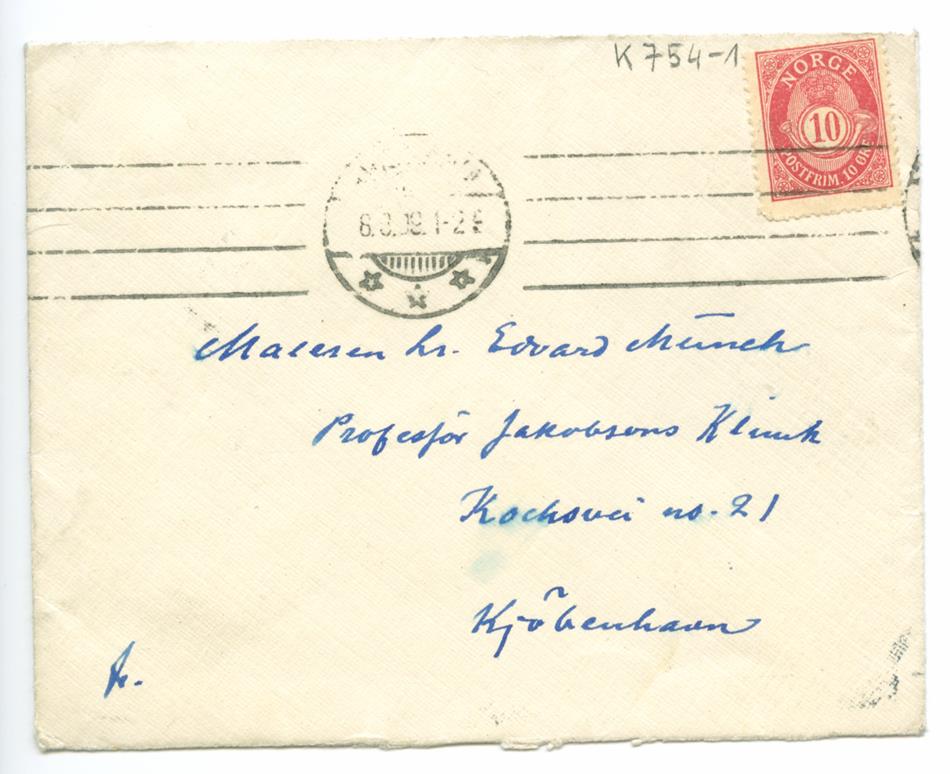 K 754-1
NORGE
10
POSTFRIM. 10 ØRE
Maleren hr. Edvard Münch
Profesjör Jakobsons Klinik
Kochsvei no. 21
Kjöbenhavn
fr.